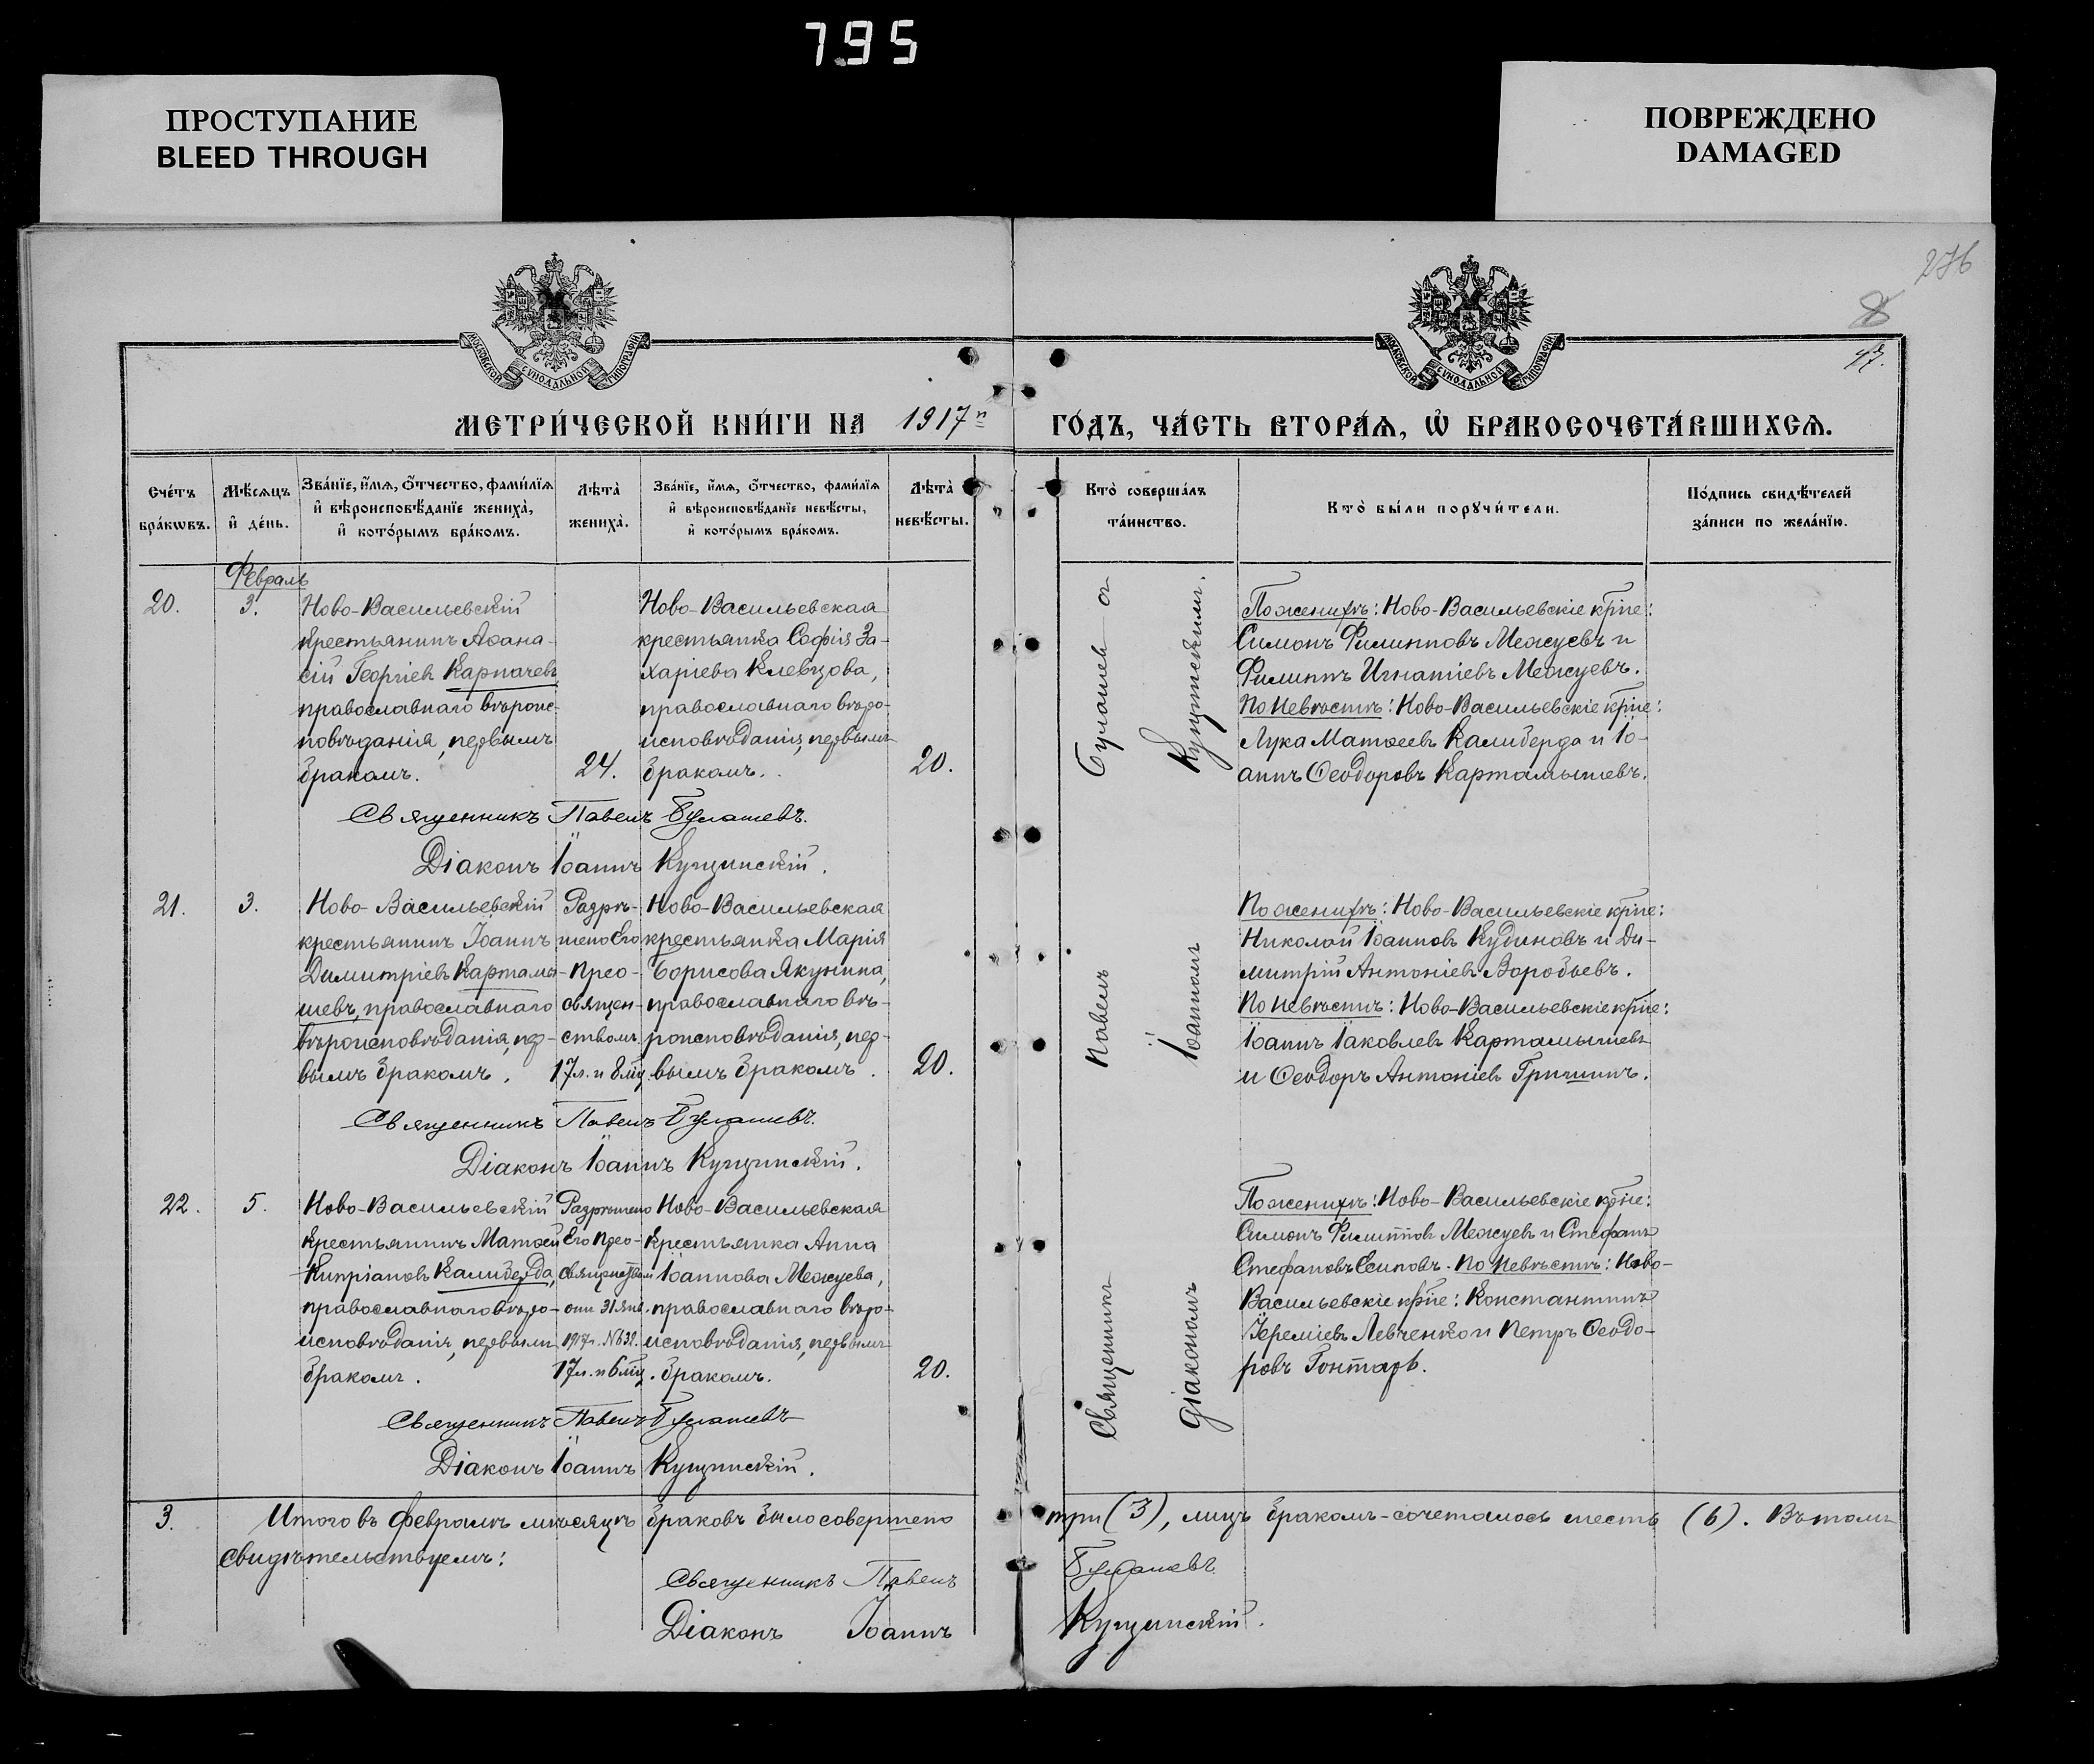 795
ПРОСТУПАНИЕ
BLEED THROUGH
ПОВРЕЖДЕНО
DAMAGED
276
8
47.
МОСКОВСКОЙ СѴНОДАЛЬНОЙ ТИПОГРАФІИ
МОСКОВСКОЙ СѴНОДАЛЬНОЙ ТИПОГРАФІИ
МЕТРИ́ЧЕСКОЙ КНИ́ГИ НА 1917 г.
ГО́ДЪ, ЧА́СТЬ ВТОРА́Ѧ, Ѽ БРАКОСОЧЕТА́ВШИХСѦ.
Сче́тъ бра́кѡвъ.
Мѣ́сѧцъ и҆ де́нь.
Зва́нїе, и҆́мѧ, ѻ҆́тчество, фами́лїѧ и҆ вѣроисповѣ́данїе жениха̀, и҆ кото́рымъ бра́комъ.
Лѣта̀ жениха̀.
Зва́нїе, и҆́мѧ, ѻ҆́тчество, фами́лїѧ и҆ вѣроисповѣ́данїе невѣ́сты, и҆ кото́рымъ бра́комъ.
Лѣта̀ невѣ́сты.
Кто̀ соверша́лъ та́инство.
Кто̀ бы́ли порꙋчи́тели.
По́дпись свидѣ́телей за́писи по жела́нїю.
Февраль
20.
3.
Ново-Васильевскій
крестьянинъ Аѳана-
сій Георгіевъ Карпачевъ
православнаго вѣроис-
повѣданія, первымъ
бракомъ.
24.
Ново-Васильевская
крестьянка Софія За-
харіева Клевцова,
православнаго вѣро-
исповѣданія, первымъ
бракомъ.
20.
Священникъ Павелъ Булашевъ.
Діаконъ Іоаннъ Кущинскій.
По женихѣ: Ново-Васильевскіе кр̃не:
Симонъ Филипповъ Межуевъ и
Филиппъ Игнатіевъ Межуевъ.
По невѣстѣ: Ново-Васильевскіе кр̃не:
Лука Матѳеевъ Калиберда и Іо-
аннъ Ѳеодоровъ Картамышевъ.
21.
3.
Ново-Васильевскій
крестьянинъ Іоаннъ
Димитріевъ Картамы-
шевъ, православнаго
вѣроисповѣданія, пер-
вымъ бракомъ.
Разрѣ-
шено Его
Прео-
священ-
ствомъ.
17 л. и 8 мц.
Ново-Васильевская
крестьянка Марія
Борисова Якунина,
православнаго вѣ-
роисповѣданія, пер-
вымъ бракомъ.
20.
Священникъ Павелъ Булашевъ.
Діаконъ Іоаннъ Кущинскій.
По женихѣ: Ново-Васильевскіе кр̃не:
Николай Іоанновъ Кудиновъ и Ди-
митрій Антоніевъ Воробьевъ.
По невѣстѣ: Ново-Васильевскіе кр̃не:
Іоаннъ Іаковлевъ Картамышевъ
и Ѳеодоръ Антоніевъ Гришинъ.
22.
5.
Ново-Васильевскій
крестьянинъ Матѳей
Кипріановъ Калиберда,
православнаго вѣро-
исповѣданія, первымъ
бракомъ.
Разрѣшено
Его Прео-
священствомъ
отъ 31 янв.
1917 г. № 632.
17 л. и 6 мц.
Ново-Васильевская
крестьянка Анна
Іоаннова Межуева,
православнаго вѣро-
исповѣданія, первымъ
бракомъ.
20.
Священникъ Павелъ Булашевъ
Діаконъ Іоаннъ Кущинскій.
По женихѣ: Ново-Васильевскіе кр̃не:
Симонъ Филипповъ Межуевъ и Стефанъ
Стефановъ Осиповъ. По невѣстѣ: Ново-
Васильевскіе кр̃не: Константинъ
Іереміевъ Левченко и Петръ Ѳеодо-
ровъ Гонтарь.
Священникъ Павелъ Булашевъ съ
діакономъ Іоанномъ Кущинскимъ.
3.
Итого въ февралѣ мѣсяцѣ браковъ было совершено три (3), лицъ бракомъ сочеталось шесть (6). Въ томъ
свидѣтельствуемъ:
Священникъ Павелъ Булашевъ
Діаконъ Іоаннъ Кущинскій.